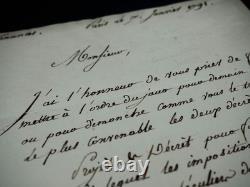 Finances.
Paris le 7. Janvier 1791.
Monsieur,
J'ai l'honneur de vous prier de
mettre à l'ordre du jour pour demain
ou pour dimanche comme vous le
le plus convenable les deux
Projet de Décret pour
lequel les imposition